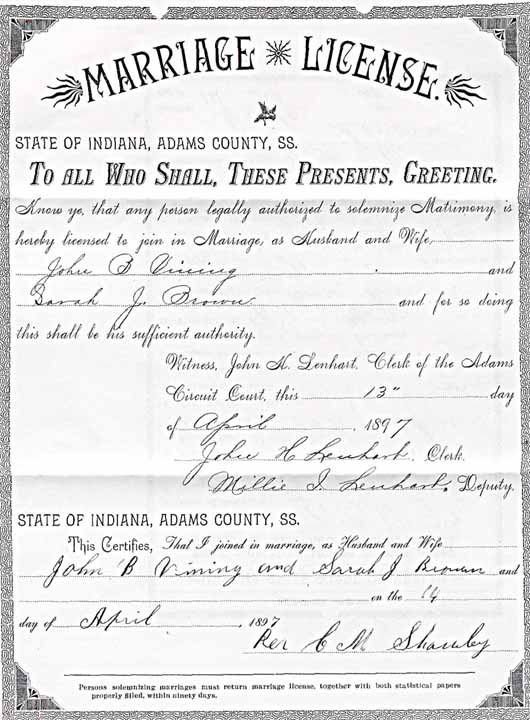 MARRIAGE LICENSE.
STATE OF INDIANA, ADAMS COUNTY, SS.
TO ALL WHO SHALL, THESE PRESENTS, GREETING.
Know ye, that any person legally authorized to solemnize Matrimony, is
hereby licensed to join in Marriage, as Husband and Wife,
John B Vining and
Sarah J. Brown and for so doing
this shall be his sufficient authority.
Witness, John H. Lenhart, Clerk of the Adams
Circuit Court, this 13" day
of April, 1897
John H Lenhart, Clerk.
Millie I. Lenhart, Deputy.
STATE OF INDIANA, ADAMS COUNTY, SS.
This Certifies, That I joined in marriage, as Husband and Wife
John B Vining and Sarah J Brown and
on the 14
day of April, 1897
Rev C M
Persons solemnizing marriages must return marriage license, together with both statistical papers
properly filled, within ninety days.